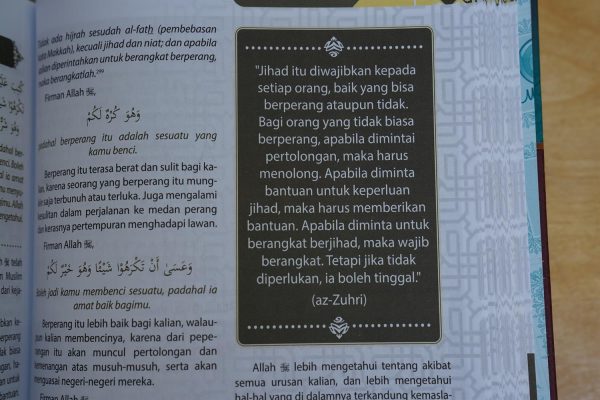 ada hijrah sesudah al-fath (pembebasan
Makkah), kecuali jihad dan niat; dan apabila
diperintahkan untuk berangkat berperang,
berangkatlah.²⁹⁹
Firman Allah ﷻ,
وَهُوَ كُرْهٌ لَكُمْ
padahal berperang itu adalah sesuatu yang
kamu benci.
Berperang itu terasa berat dan sulit bagi ka-
lian, karena seorang yang berperang itu mung-
kin saja terbunuh atau terluka. Juga mengalami
kesulitan dalam perjalanan ke medan perang
dan kerasnya pertempuran menghadapi lawan.
Firman Allah ﷻ,
وَعَسَىٰ أَنْ تَكْرَهُوْا شَيْئًا وَهُوَ خَيْرٌ لَكُمْ
Boleh jadi kamu membenci sesuatu, padahal ia
amat baik bagimu.
Berperang itu lebih baik bagi kalian, walau-
pun kalian membencinya, karena dari pepe-
rangan itu akan muncul pertolongan dan
kemenangan atas musuh-musuh, serta akan
menguasai negeri-negeri mereka.
Firman Allah ﷻ,
"Jihad itu diwajibkan kepada
setiap orang, baik yang bisa
berperang ataupun tidak.
Bagi orang yang tidak biasa
berperang, apabila dimintai
pertolongan, maka harus
menolong. Apabila diminta
bantuan untuk keperluan
jihad, maka harus memberikan
bantuan. Apabila diminta untuk
berangkat berjihad, maka wajib
berangkat. Tetapi jika tidak
diperlukan, ia boleh tinggal."
(az-Zuhri)
Allah ﷻ lebih mengetahui tentang akibat
semua urusan kalian, dan lebih mengetahui
hal-hal yang di dalamnya terkandung kemasla-